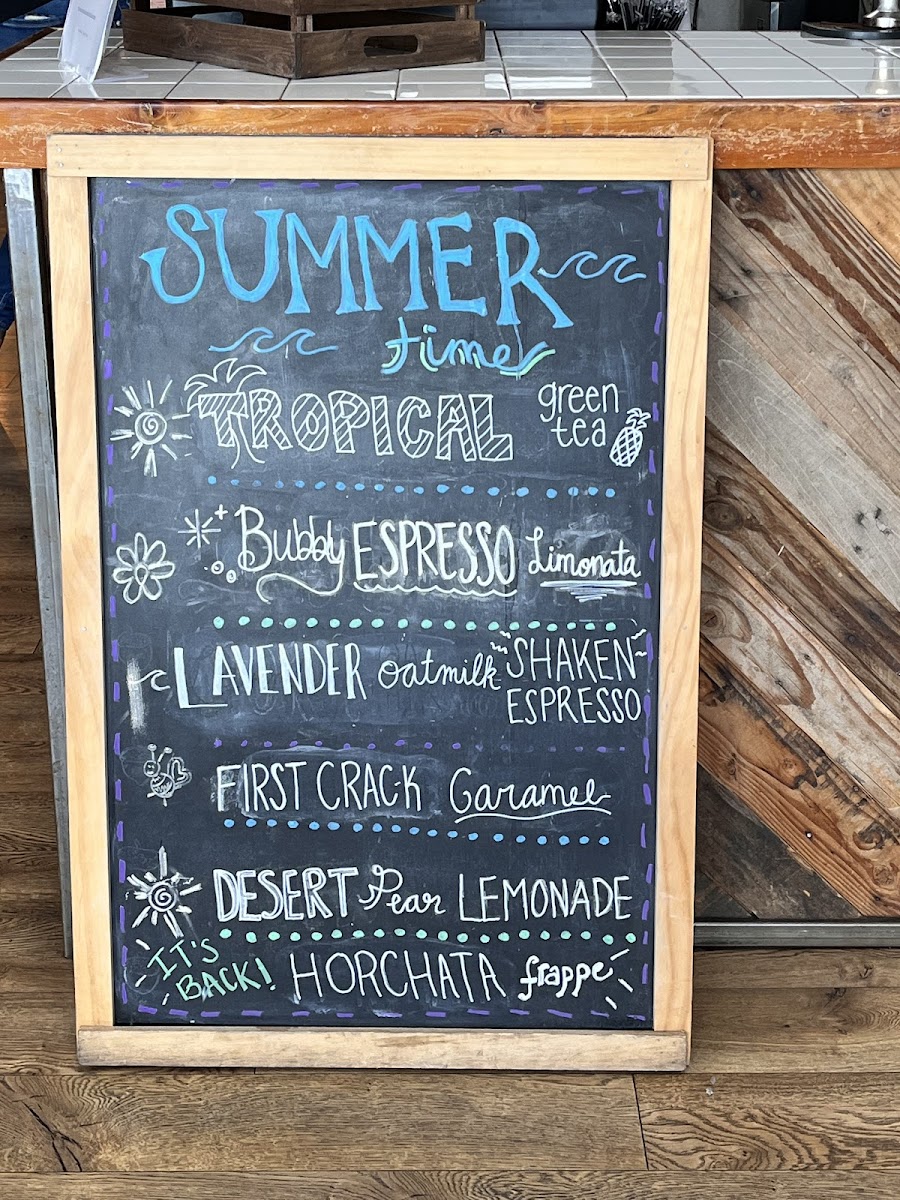 SUMMER
time
TROPICAL green tea
Bubbly ESPRESSO Limonata
LAVENDER oatmilk SHAKEN ESPRESSO
FIRST CRACK Caramel
DESERT Pear LEMONADE
IT'S BACK! HORCHATA frappe